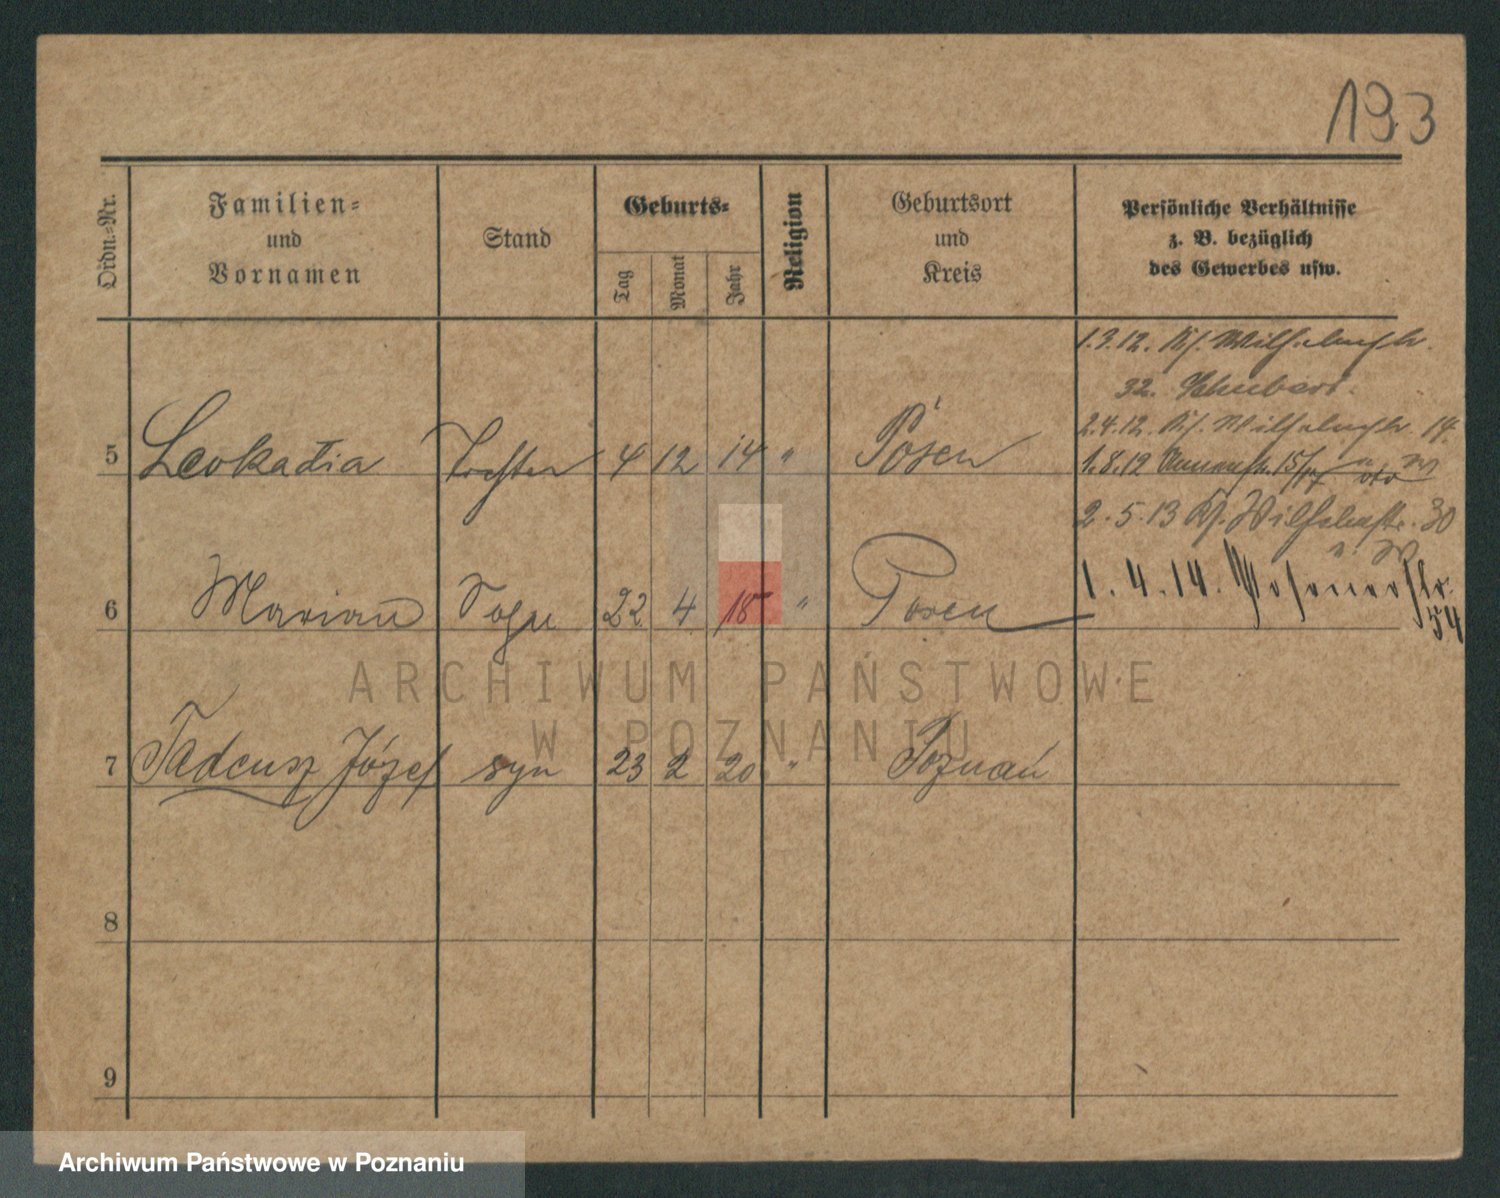 193
Ordn.-Nr.
Familien-
und
Vornamen
Stand
Geburts-
Tag
Monat
Jahr
Religion
Geburtsort
und
Kreis
Persönliche Verhältnisse
z. B. bezüglich
des Gewerbes usw.
1.3.12.
32. Schubert.
2.4.12. 14.
5 Leokadia Tochter 4 12 14 " Posen
1.8.12
2.5.13 30
6 Marian Sohn 22 4 15 " Posen
1.4.14. Posenerstr.
54
7 Tadeusz Józef syn 23 2 20 " Poznań
8
9
ARCHIWUM PAŃSTWOWE
W POZNANIU
Archiwum Państwowe w Poznaniu